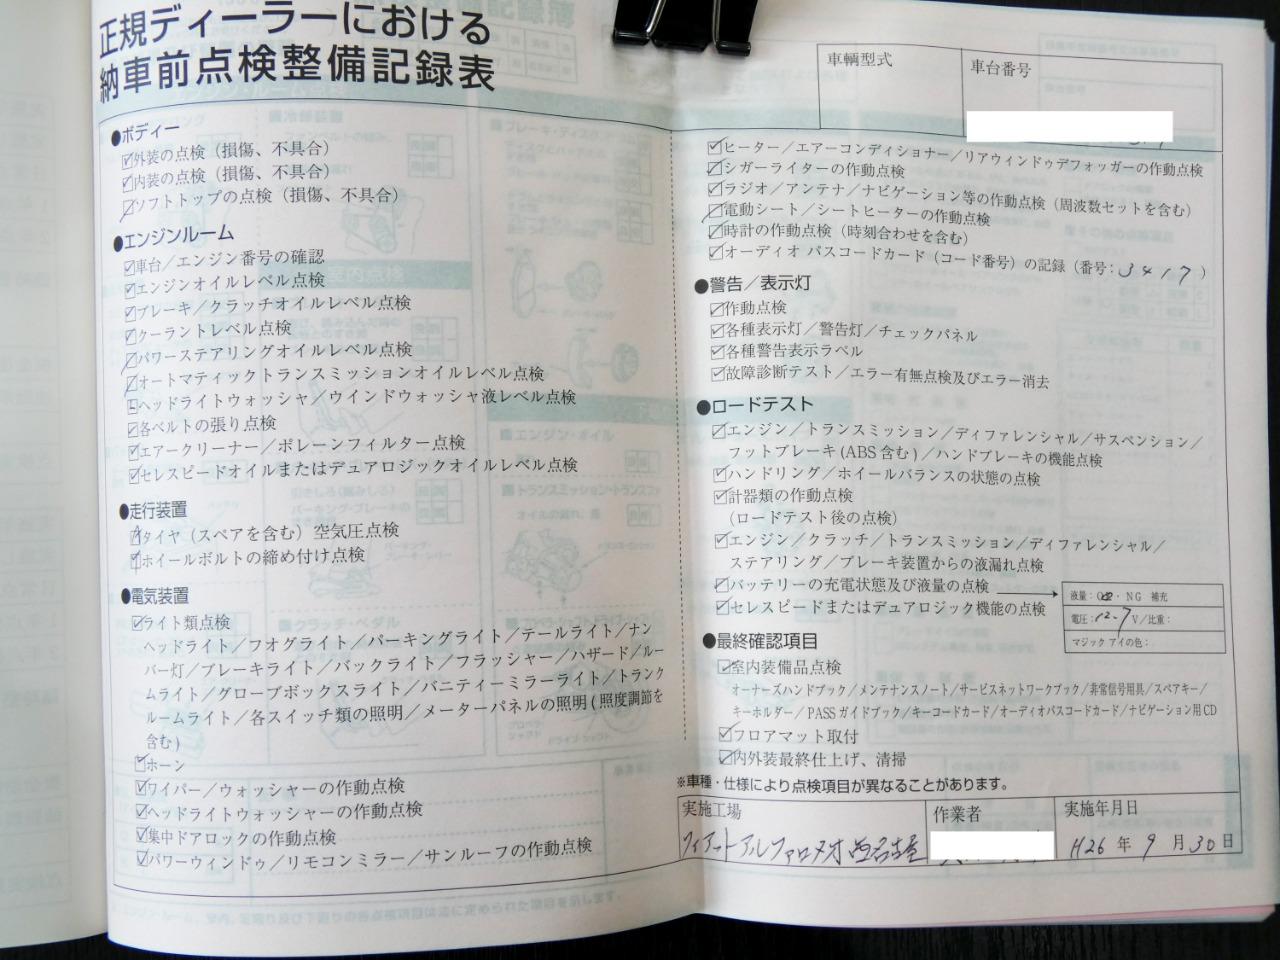 正規ディーラーにおける
納車前点検整備記録表
車輌型式
車台番号
●ボディー
外装の点検（損傷、不具合）
内装の点検（損傷、不具合）
ソフトトップの点検（損傷、不具合）
●エンジンルーム
車台／エンジン番号の確認
エンジンオイルレベル点検
ブレーキ／クラッチオイルレベル点検
クーラントレベル点検
パワーステアリングオイルレベル点検
オートマティックトランスミッションオイルレベル点検
ヘッドライトウォッシャ／ウインドウォッシャ液レベル点検
各ベルトの張り点検
エアークリーナー／ポレーンフィルター点検
セレスピードオイルまたはデュアロジックオイルレベル点検
●走行装置
タイヤ（スペアを含む）空気圧点検
ホイールボルトの締め付け点検
●電気装置
ライト類点検
ヘッドライト／フオグライト／パーキングライト／テールライト／ナン
バー灯／ブレーキライト／バックライト／フラッシャー／ハザード／ルー
ムライト／グローブボックスライト／バニティーミラーライト／トランク
ルームライト／各スイッチ類の照明／メーターパネルの照明(照度調節を
含む)
ホーン
ワイパー／ウォッシャーの作動点検
ヘッドライトウォッシャーの作動点検
集中ドアロックの作動点検
パワーウィンドゥ／リモコンミラー／サンルーフの作動点検
ヒーター／エアーコンディショナー／リアウィンドゥデフォッガーの作動点検
シガーライターの作動点検
ラジオ／アンテナ／ナビゲーション等の作動点検（周波数セットを含む）
電動シート／シートヒーターの作動点検
時計の作動点検（時刻合わせを含む）
オーディオ パスコードカード（コード番号）の記録（番号：3417）
●警告／表示灯
作動点検
各種表示灯／警告灯／チェックパネル
各種警告表示ラベル
故障診断テスト／エラー有無点検及びエラー消去
●ロードテスト
エンジン／トランスミッション／ディファレンシャル／サスペンション／
フットブレーキ(ABS含む)／ハンドブレーキの機能点検
ハンドリング／ホイールバランスの状態の点検
計器類の作動点検
（ロードテスト後の点検）
エンジン／クラッチ／トランスミッション／ディファレンシャル／
ステアリング／ブレーキ装置からの液漏れ点検
バッテリーの充電状態及び液量の点検
セレスピードまたはデュアロジック機能の点検
液量：OK・NG 補充
電圧：12.7V／比重：
マジック アイの色：
●最終確認項目
室内装備品点検
オーナーズハンドブック／メンテナンスノート／サービスネットワークブック／非常信号用具／スペアキー／
キーホルダー／PASSガイドブック／キーコードカード／オーディオパスコードカード／ナビゲーション用CD
フロアマット取付
内外装最終仕上げ、清掃
※車種・仕様により点検項目が異なることがあります。
実施工場
作業者
実施年月日
フィアット アルファロメオ 名古屋
H26年9月30日